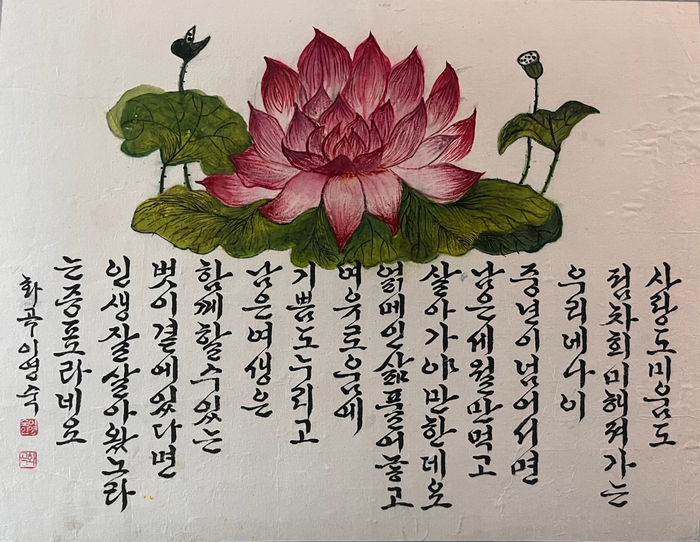 사랑도미움도
점차희미해져가는
우리네나이
중년이넘어서면
남은세월만먹고
살아가야만한데요
얽메인삶풀어놓고
여유로움에
기쁨도누리고
남은여생은
함께할수있는
벗이곁에있다면
인생잘살아왔노라
는증표라네요
화곡이영숙